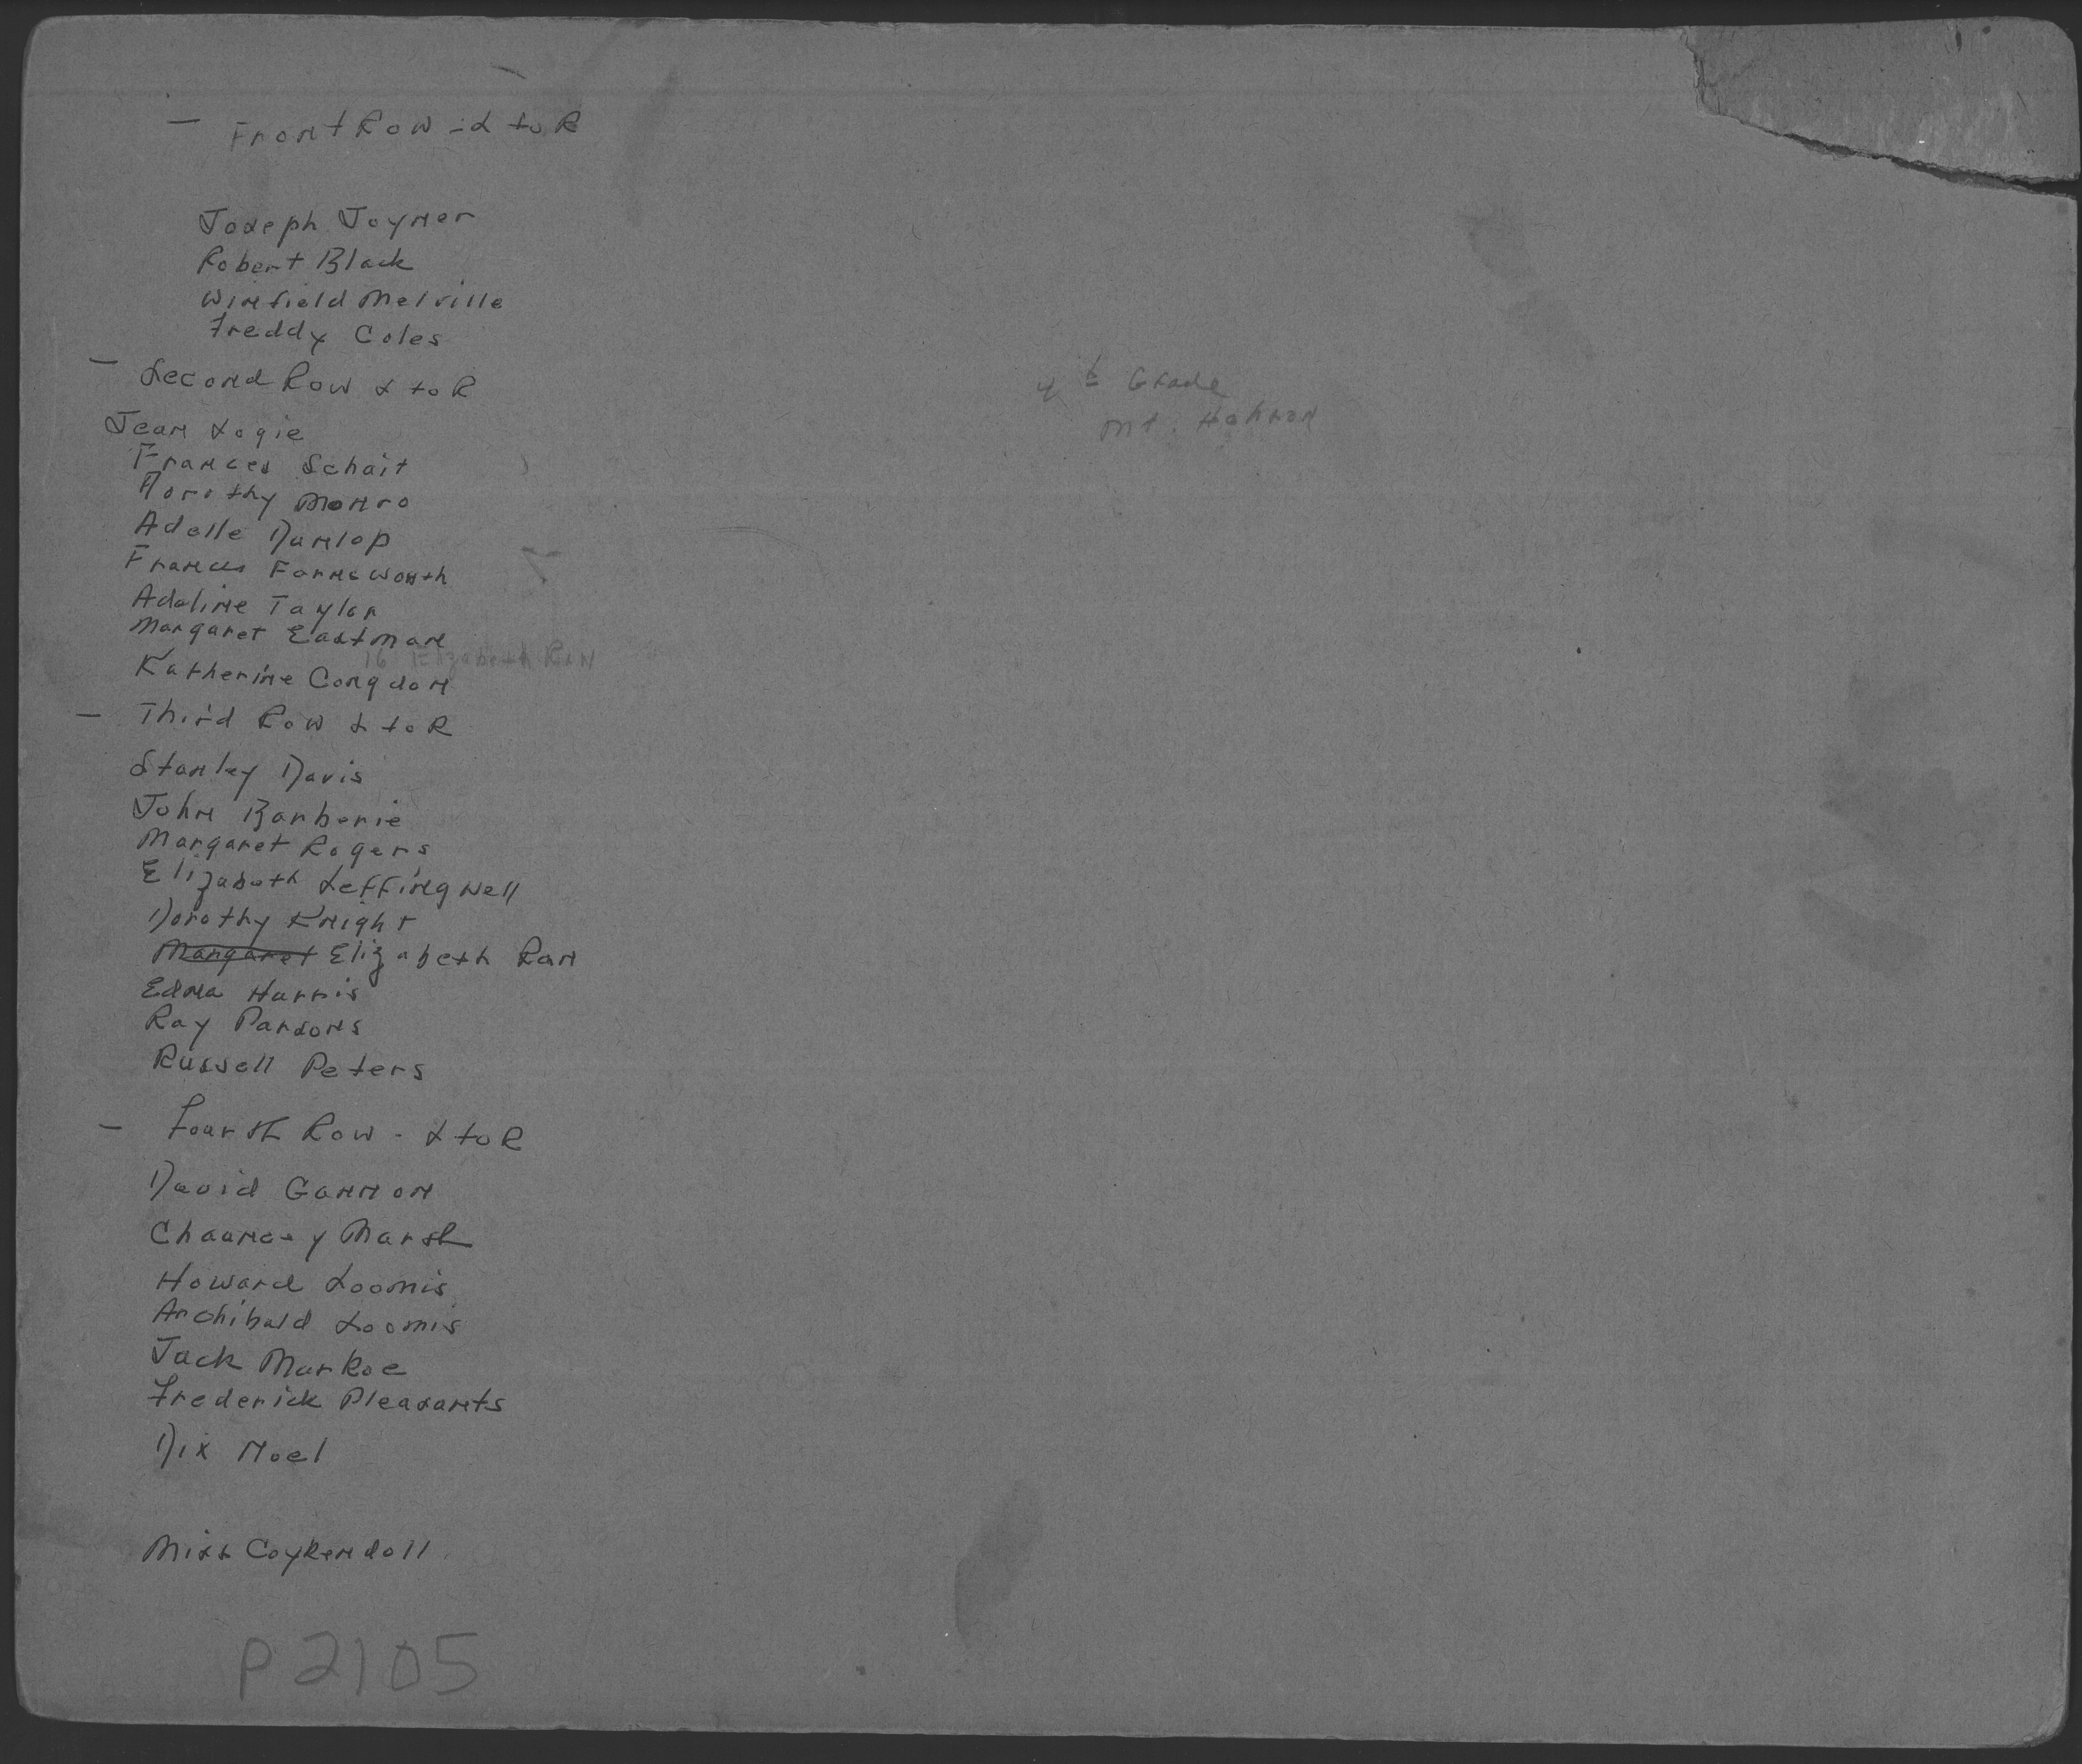 - Front Row - L to R
Joseph Joyner
Robert Black
Winfield Melville
Freddy Coles
- Second Row L to R
Jean Logie
Frances Schait
Dorothy Monro
Adelle Dunlop
Frances Farnsworth
Adaline Taylor
Margaret Eastman
16 Elizabeth Ran
Katherine Congdon
- Third Row L to R
Stanley Davis
John Barberie
Margaret Rogers
Elizabeth Leffingwell
Dorothy Knight
Margaret Elizabeth Ran
Edna Harris
Ray Parsons
Russell Peters
- Fourth Row - L to R
David Gannon
Chauncey Marsh
Howard Loomis
Archibald Loomis
Jack Markoe
Frederick Pleasants
Dix Noel
Miss Coykendoll
P2105
4th Grade
Mt. Hebron